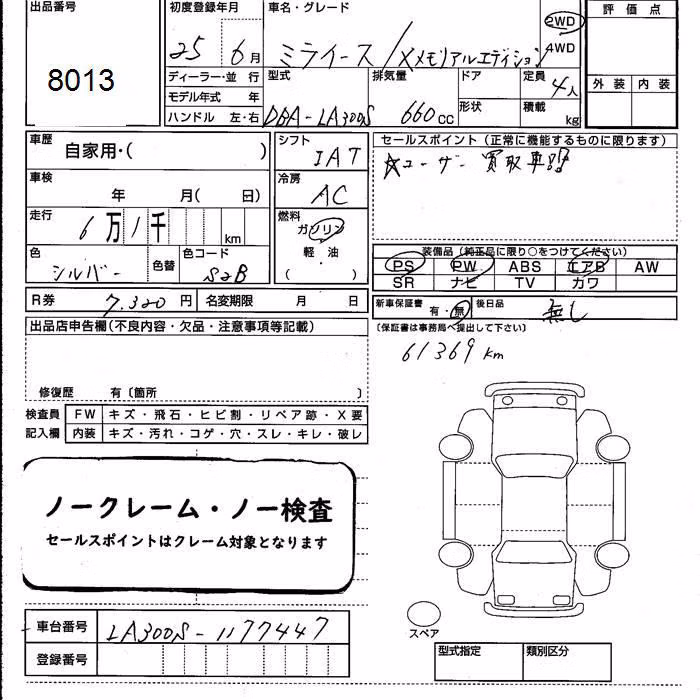 出品番号
8013
初度登録年月
25 6月
車名・グレード
ミライース/Xメモリアルエディション
2WD
4WD
評価点
外装 内装
ディーラー・並行
モデル年式 年
ハンドル 左・右
型式
DBA-LA300S
排気量
660cc
ドア
形状
定員
4人
積載
kg
車歴
自家用・( )
車検
年 月( 日)
走行
6万1千 km
色
シルバー
色替
色コード
S28
シフト
IAT
冷房
AC
燃料
ガソリン
軽・油
( ・ )
セールスポイント(正常に機能するものに限ります)
☆ユーザー買取車!!
装備品(純正品に限り○をつけてください)
PS PW ABS エアB AW
SR ナビ TV カワ
R券 7,320円 名変期限 月 日
新車保証書 有・無 後日品 無し
(保証書は事務局へ提出して下さい)
61369km
出品店申告欄(不良内容・欠品・注意事項等記載)
修復歴 有〔箇所 〕
検査員
記入欄
FW キズ・飛石・ヒビ割・リペア跡・X要
内装 キズ・汚れ・コゲ・穴・スレ・キレ・破レ
ノークレーム・ノー検査
セールスポイントはクレーム対象となります
車台番号 LA300S-1177447
登録番号
スペア
型式指定 類別区分